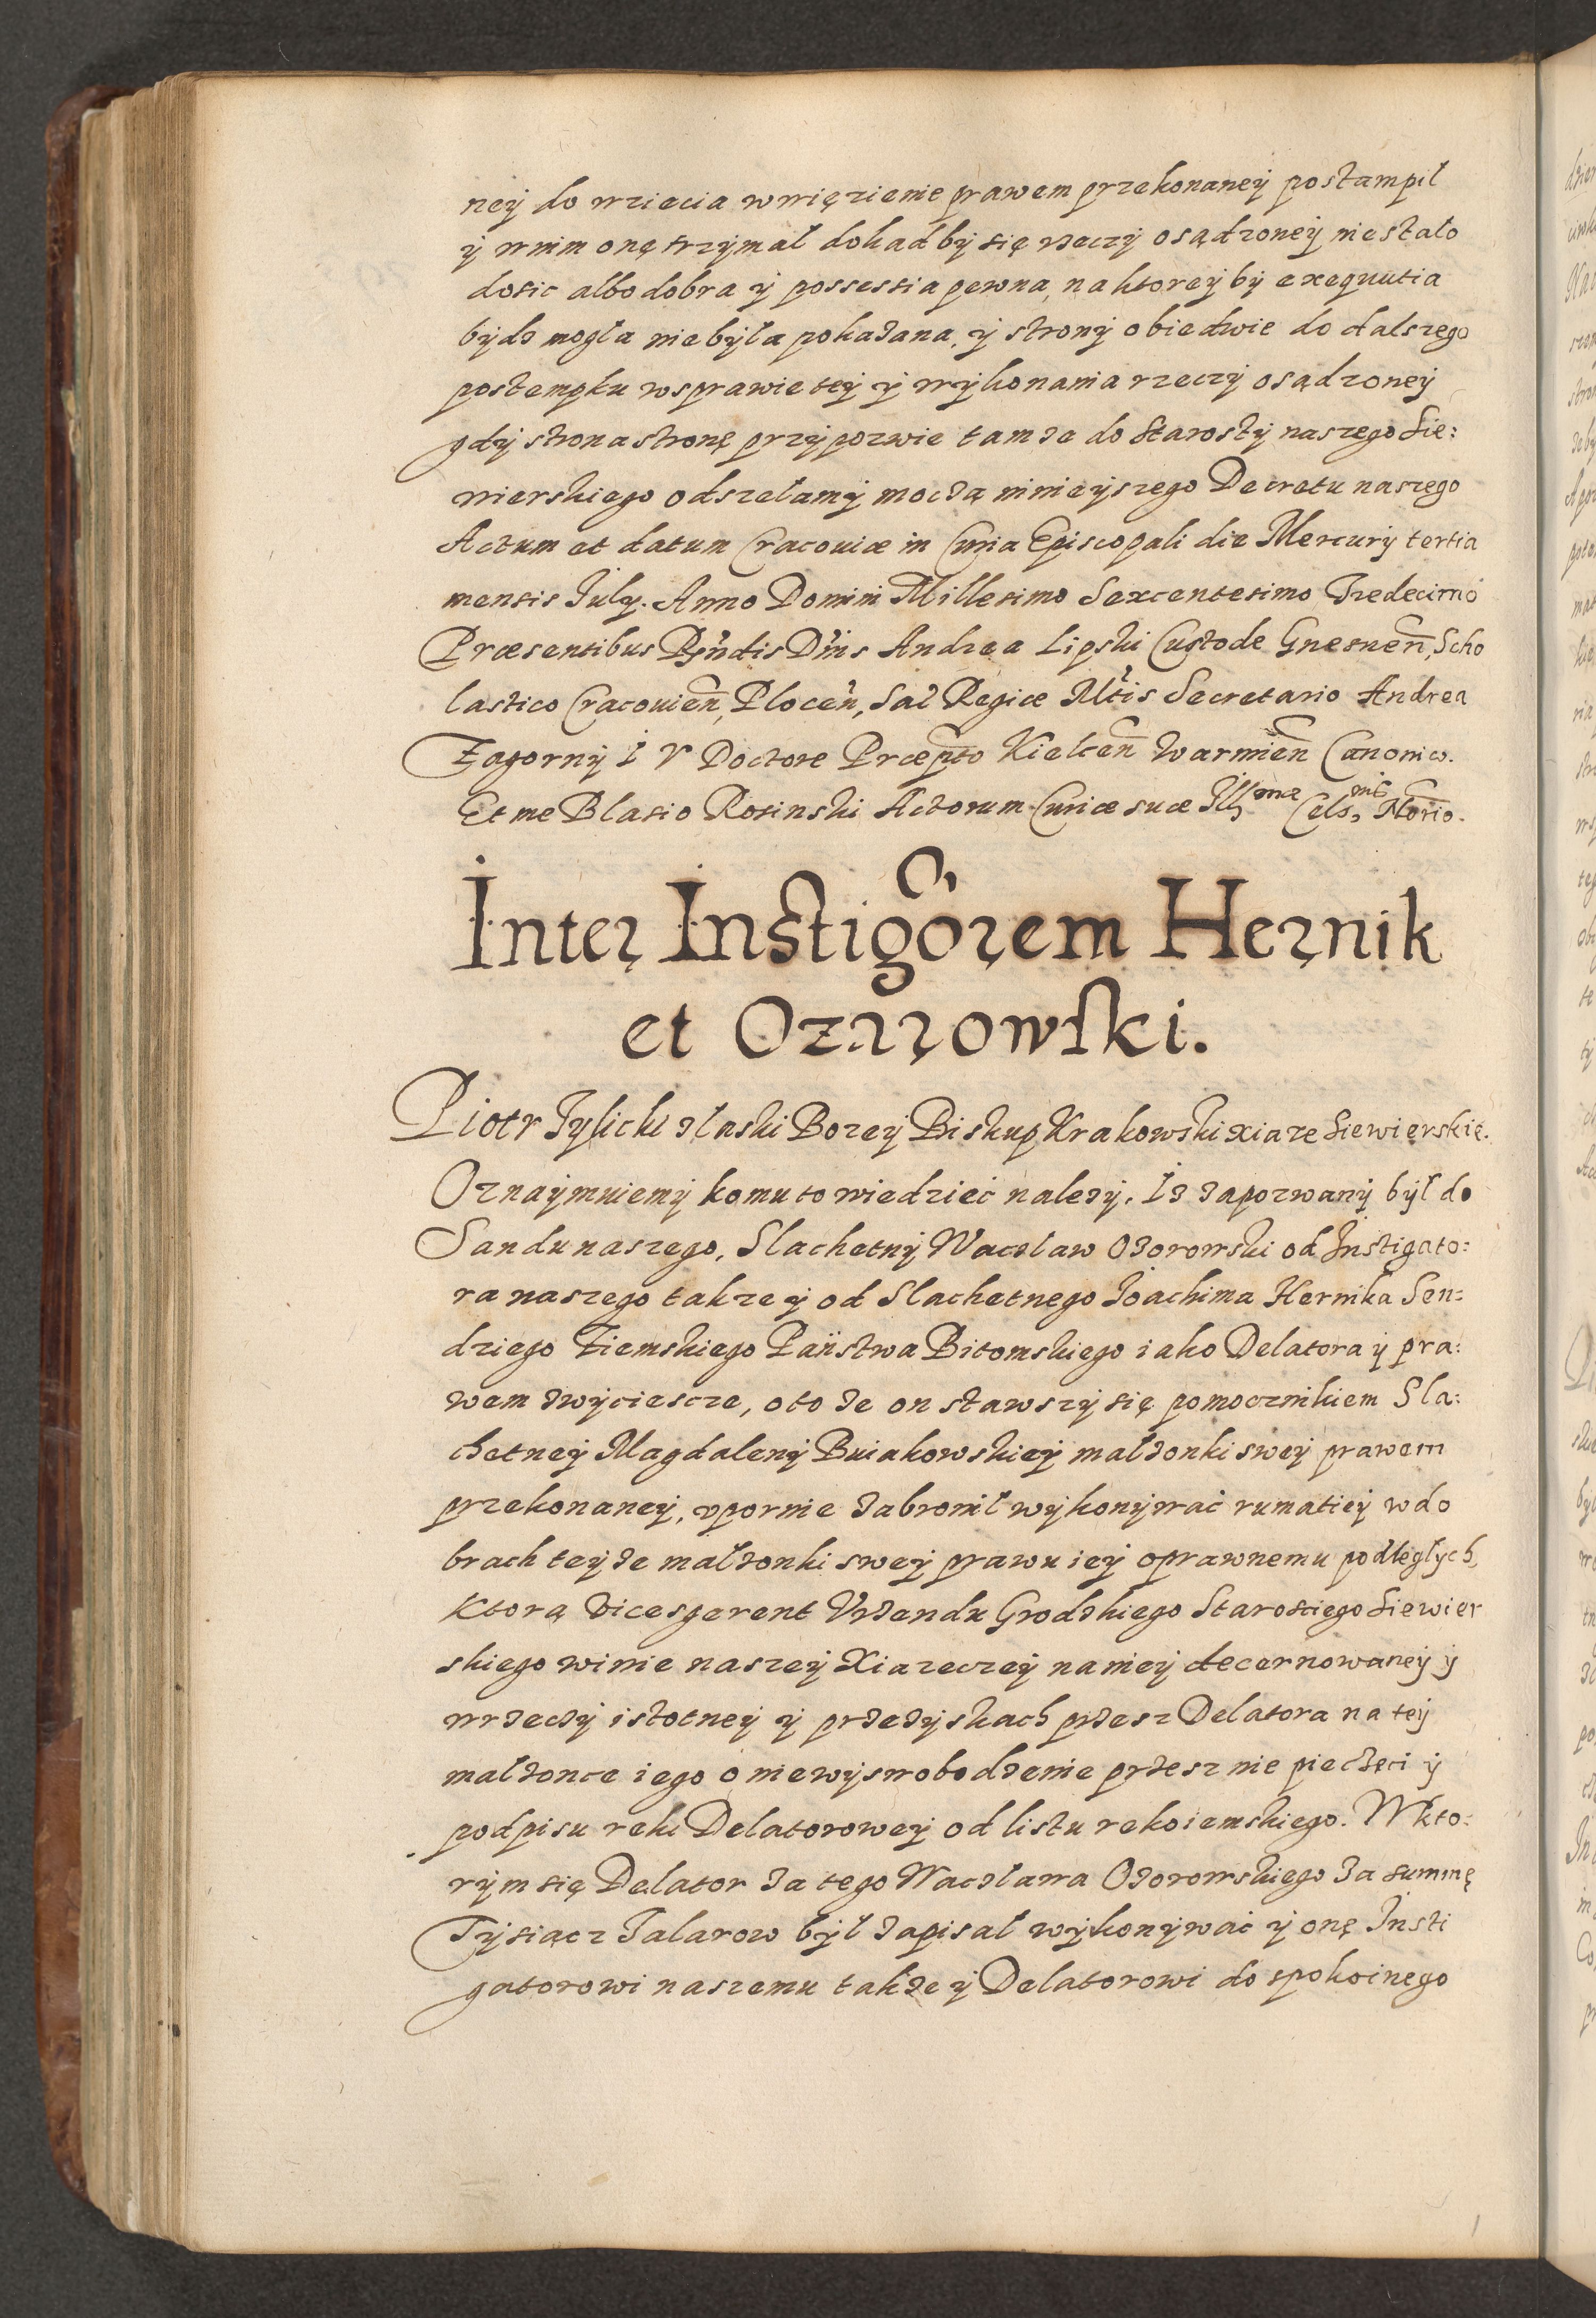 ney do wziecia wwięzienie prawem przekonaney postąmpił
y wnim onę trzymał dokad by się rzeczy osądzoney niestało
dosic albo dobra y possessia pewna, na ktorey by exequutia
bydz mogła niebyła pokazana, y strony obiedwie do dalszego
postempku wsprawie tey y wykonania rzeczy osądzoney
gdy strona stronę przypozwie tamze do Starosty naszego Sie:
wierskiego odszełamy moczą ninieyszego Decretu naszego
Actum et datum Cracouiæ in Curia Episcopali die Mercurij tertia
mensis July. Anno Domini Millesimo Sexcentesimo Tredecimo
Præsentibus Rñdis Dñis Andrea Lipski Custode Gnesneñ, Scho
lastico Cracouieñ, Ploceñ, Sac Regiæ Mtis Secretario Andrea
Zagorny I V Doctore Præpto Kielceñ Warmieñ Canonico.
Et me Blasio Rosinski Actorum Curiæ suæ Illmæ Cels, nis Notrio.
Inter Instigorem Hernik
et Ozarowski.
Piotr Tylicki złaski Bozey Biskup Krakowski xiaze Siewierskie.
Oznaymuiemy komu to wiedzieć nalezy. Iz zapozwany był do
Sandu naszego, Slachetny Waczław Ozorowski od Instigato:
ra naszego takze y od Slachetnego Joachima Hernika Sen:
dziego Ziemskiego Państwa Bitomskiego iako Delatora y pra:
wem zwyciescze, oto ze on stawszy się pomocznikiem Sla:
chetney Magdaleny Buiakowskiey małzonki swey prawem
przekonaney, vpornie zabronił wykonywać rumatiey wdo
brach teyze małzonki swey prawu iey oprawnemu podległych,
Ktorą Vicesgerent Vrzendu Grodzkiego Starosciego Siewier
skiego winie naszey Xiazeczey naniey decernowaney y
wrzeczy istotney y przezyskach przesz Delatora na tey
małzonce iego o niewyswobodzenie przesz nie pieczęci y
podpisu reki Delatorowey od listu rekoiemskiego. Wkto:
rym się Delator za tego Waczława Ozorowskiego za summę
Tysiącz Talarow był zapisał wykonywać y onę Insti
gatorowi naszemu takze y Delatorowi do spokoinego